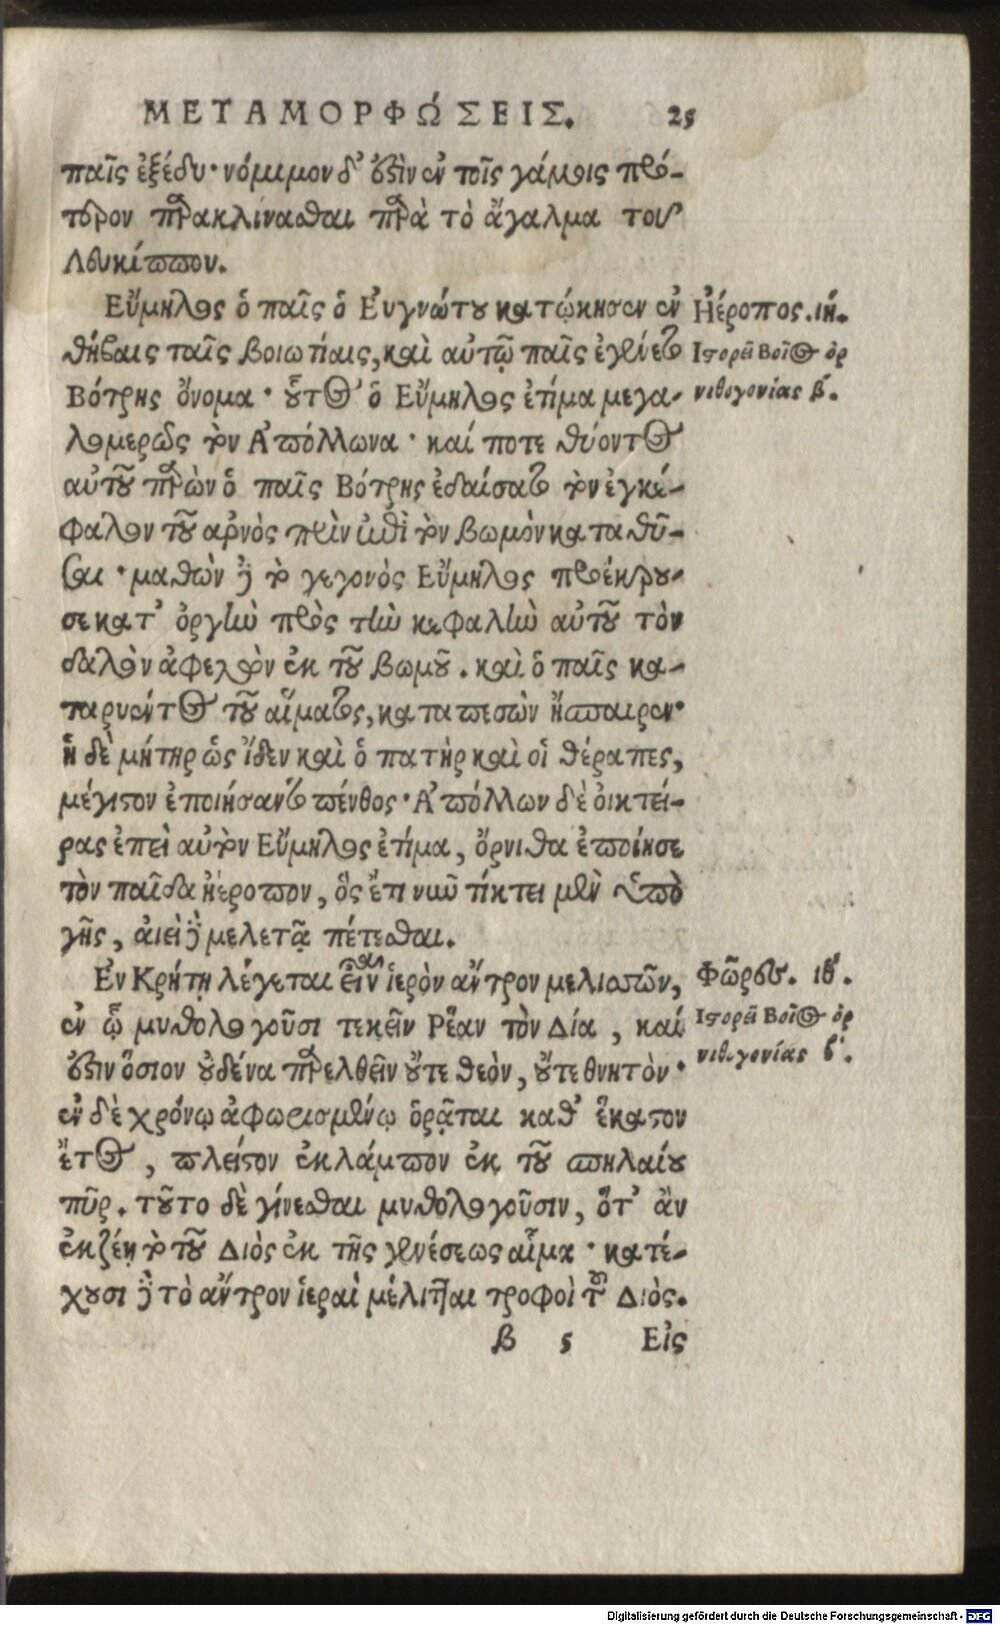 ΜΕΤΑΜΟΡΦΏΣΕΙΣ. 25
παῖς ἐξέδυ· νόμιμον δ' ἐϛὶν ἐν τοῖς γάμοις πρό-
τερον παρακλίνασθαι παρὰ τὸ ἄγαλμα τοῦ
Λευκίππου.
Εὔμηλος ὁ παῖς ὁ Εὐγνώτου κατῴκησεν ἐν
θήβαις ταῖς βοιωτίαις, καὶ αὐτῷ παῖς ἐγένετο
Βότρης ὄνομα· οὗτος ὁ Εὔμηλος ἐτίμα μεγα-
λομερῶς τὸν Ἀπόλλωνα· καί ποτε θύοντος
αὐτοῦ παρὼν ὁ παῖς Βότρης ἐδαίσατο τὸν ἐγκέ-
φαλον τοῦ ἀρνὸς πρὶν ἐπὶ τὸν βωμὸν καταθῦ-
σαι· μαθὼν δὲ τὸ γεγονὸς Εὔμηλος προέκρου-
σε κατ' ὀργὴν πρὸς τὴν κεφαλὴν αὐτοῦ τὸν
δαλὸν ἀφελὼν ἐκ τοῦ βωμοῦ. καὶ ὁ παῖς κα-
ταρυέντος τοῦ αἵματος, καταπεσὼν ἤσπαιρεν·
ἡ δὲ μήτηρ ὡς ἴδεν καὶ ὁ πατὴρ καὶ οἱ θέραπες,
μέγιστον ἐποιήσαντο πένθος· Ἀπόλλων δὲ οἰκτεί-
ρας ἐπεὶ αὐτὸν Εὔμηλος ἐτίμα, ὄρνιθα ἐποίησε
τὸν παῖδα ἠέροπον, ὃς ἔτι νῦν τίκτει μὲν ὑπὸ
γῆς, ἀιεὶ δὲ μελετᾷ πέτεσθαι.
Ἐν Κρήτῃ λέγεται εἶναι ἱερὸν ἄντρον μελισσῶν,
ἐν ᾧ μυθολογοῦσι τεκεῖν Ῥέαν τὸν Δία, καί
ἐϛιν ὅσιον οὐδένα παρελθεῖν οὔτε θεὸν, οὔτε θνητὸν·
ἐν δὲ χρόνῳ ἀφωρισμένῳ ὁρᾶται καθ' ἕκαστον
ἔτος, πλεῖστον ἐκλάμπον ἐκ τοῦ σπηλαίου
πῦρ. τοῦτο δὲ γίνεσθαι μυθολογοῦσιν, ὅτ' ἂν
ἐκζέῃ τὸ τοῦ Διὸς ἐκ τῆς γενέσεως αἷμα· κατέ-
χουσι δὲ τὸ ἄντρον ἱεραὶ μέλισσαι τροφοὶ τοῦ Διός.
Β 5 Εἰς
Ἠέροπος. ιή.
Ἱστορεῖ Βοῖος ὀρ
νιθογονίας β.
Φῶρες. ιθ'.
Ἱστορεῖ Βοῖος ὀρ
νιθογονίας β'.
Digitalisierung gefördert durch die Deutsche Forschungsgemeinschaft - DFG